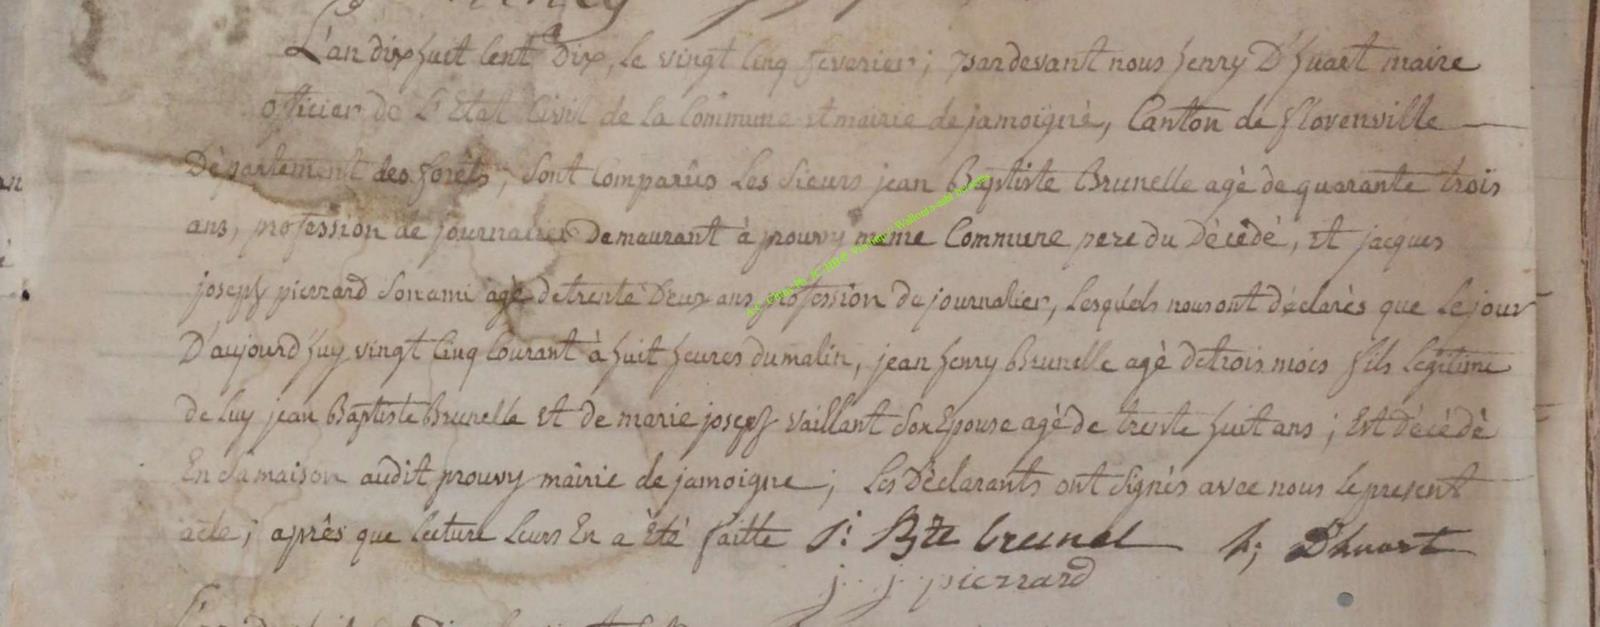 L'an dix huit Cent Dix, le vingt Cinq feverier ; pardevant nous henry D'huart maire
officier de L'Etat Civil de la Commune et mairie de jamoigne, Canton de florenville
Département des forêts, sont Comparus Les Sieurs jean Baptiste Brunelle agé de quarante trois
ans, profession de journalier Demeurant à prouvy même Commune pere du Décédé, et jacques
joseph pierrard Son ami agé de trente Deux ans profession de journalier, Lesquels nous ont déclarés que Le jour
D'aujourd'huy vingt Cinq Courant à huit heures du matin, jean henry Brunelle agé de trois mois fils légitime
de Luy jean Baptiste Brunelle et de marie joseph vaillant Son Epouse agé de trente huit ans ; Est décédé
En Sa maison audit prouvy mairie de jamoigne ; Les Déclarants ont signés avec nous le present
acte ; après que lecture leurs En a Eté faitte J: Bte brunel h; Dhuart
j. j. pierrard